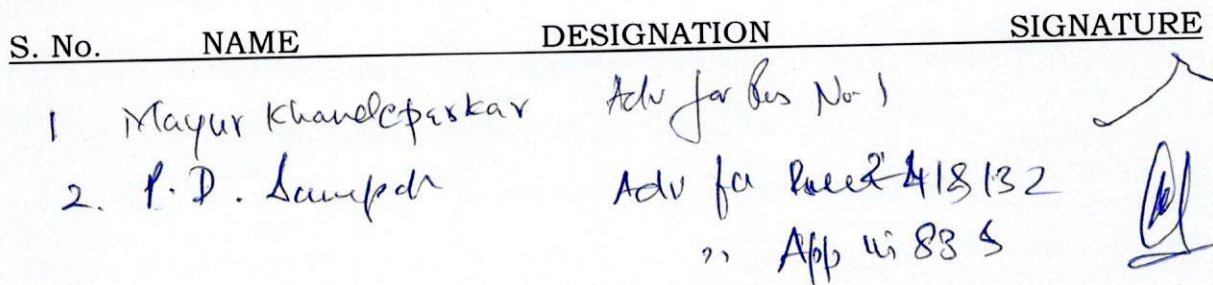 S. No. NAME DESIGNATION SIGNATURE
1 Mayur Khandeparkar Adv for Res No. 1
2. P. D. Adv for
,, App in 83